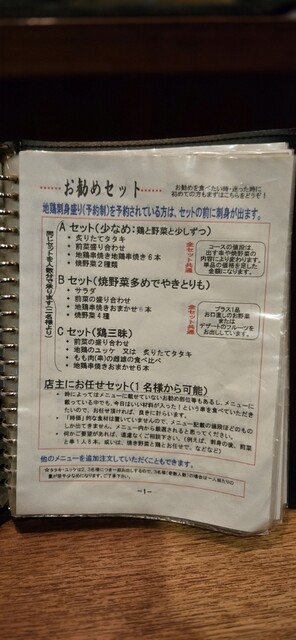 お勧めセット
お勧めを食べたい時・迷った時に
初めての方もまずはこちらをどうぞ!
地鶏刺身盛り(予約制)を予約されている方は、セットの前に刺身が出ます。
同じセットを人数分で承ります(二名様より)
A セット(少なめ:鶏と野菜と少しずつ)
・ 炙りたてタタキ
・ 前菜盛り合わせ
・ 地鶏串焼き地鶏串焼き6本
・ 焼野菜2種類
全セット共通
コースの値段は、
出す串や焼野菜の
内容により変わります。
単品の価格を足した
金額になります。
B セット(焼野菜多めでやきとりも)
・ サラダ
・ 前菜の盛り合わせ
・ 地鶏串焼きおまかせ6本
・ 焼野菜4種
全セット共通
プラス1品
お口直しのお野菜
または
デザートのフルーツを
お出ししています。
C セット(鶏三昧)
・ 前菜の盛り合わせ
・ 地鶏のユッケ 又は 炙りたてタタキ
・ もも肉(串)の雌雄の食べ比べ
・ 地鶏串焼きおまかせ6本
店主にお任せセット(1名様から可能)
・ 時によってはメニューに載せていないお勧め部位等もあるし、メニューに
載っている中でも、今日はいい材料が入った!という串を食べていただき
たいので、お任せ頂ければ、良きに計らいます。
・ 「時価」的な食材は置いていませんので、メニュー記載の値段ほどのもの
しか出てきません。メニュー内から厳選されると思ってください。
・ 何かご要望があれば、遠慮なくご相談下さい。(例えば、刺身の後、前菜
と串1人5本。或いは、串焼きと麺とお任せで。などなど)
他のメニューを追加注文していただくこともできます。
-1-